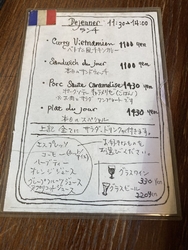 Dejeuner 11:30~14:00
ランチ
• Curry Vietnamien 1100 yen
ベトナム風チキンカレー
• Sandwich du jour 1100 yen
本日のサンドウィッチ
• Porc Sauce Caramélisée 1430 yen
• plat du jour 1430 yen
本日のスペシャル
上記全てに サラダ、ドリンクが付きます。
エスプレッソ
コーヒー
ハーブティー
オレンジジュース
グレープフルーツジュース
お好きなものを
お選びください。
グラスワイン
330
グラスビール
220